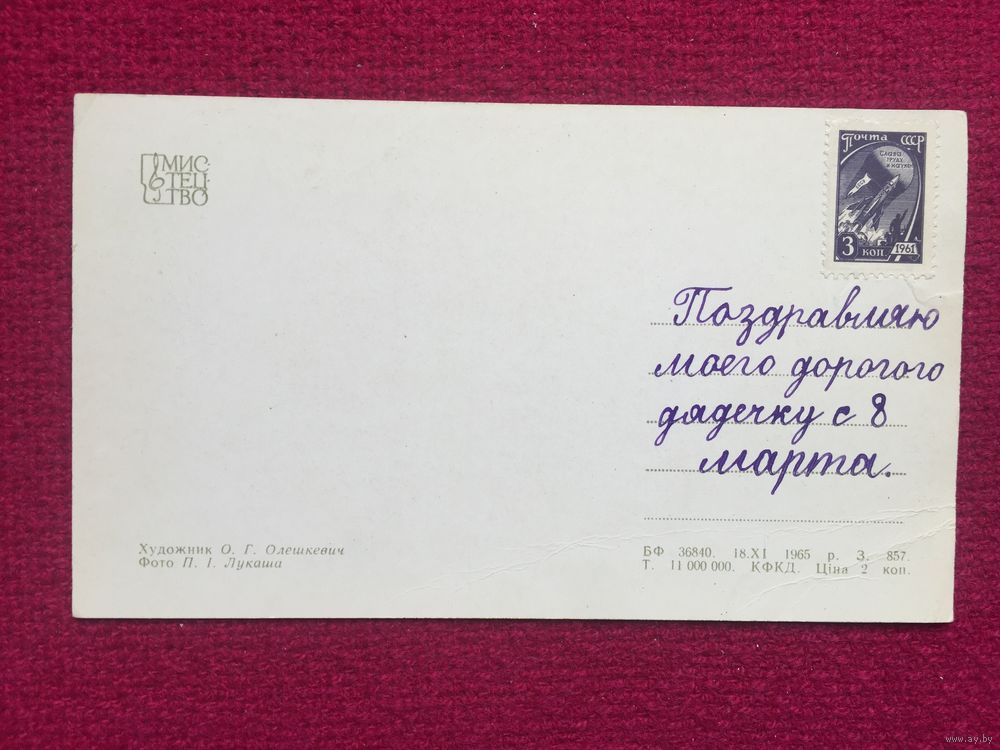 МИС-
ТЕЦ-
ТВО
Почта СССР
СЛАВА
ТРУДУ
И НАУКЕ
3 коп. 1961
Поздравляю
моего дорогого
дядечку с 8
марта.
Художник О. Г. Олешкевич
Фото П. І. Лукаша
БФ 36840. 18.XI 1965 р. З. 857.
Т. 11 000 000. КФКД. Ціна 2 коп.
www.ay.by